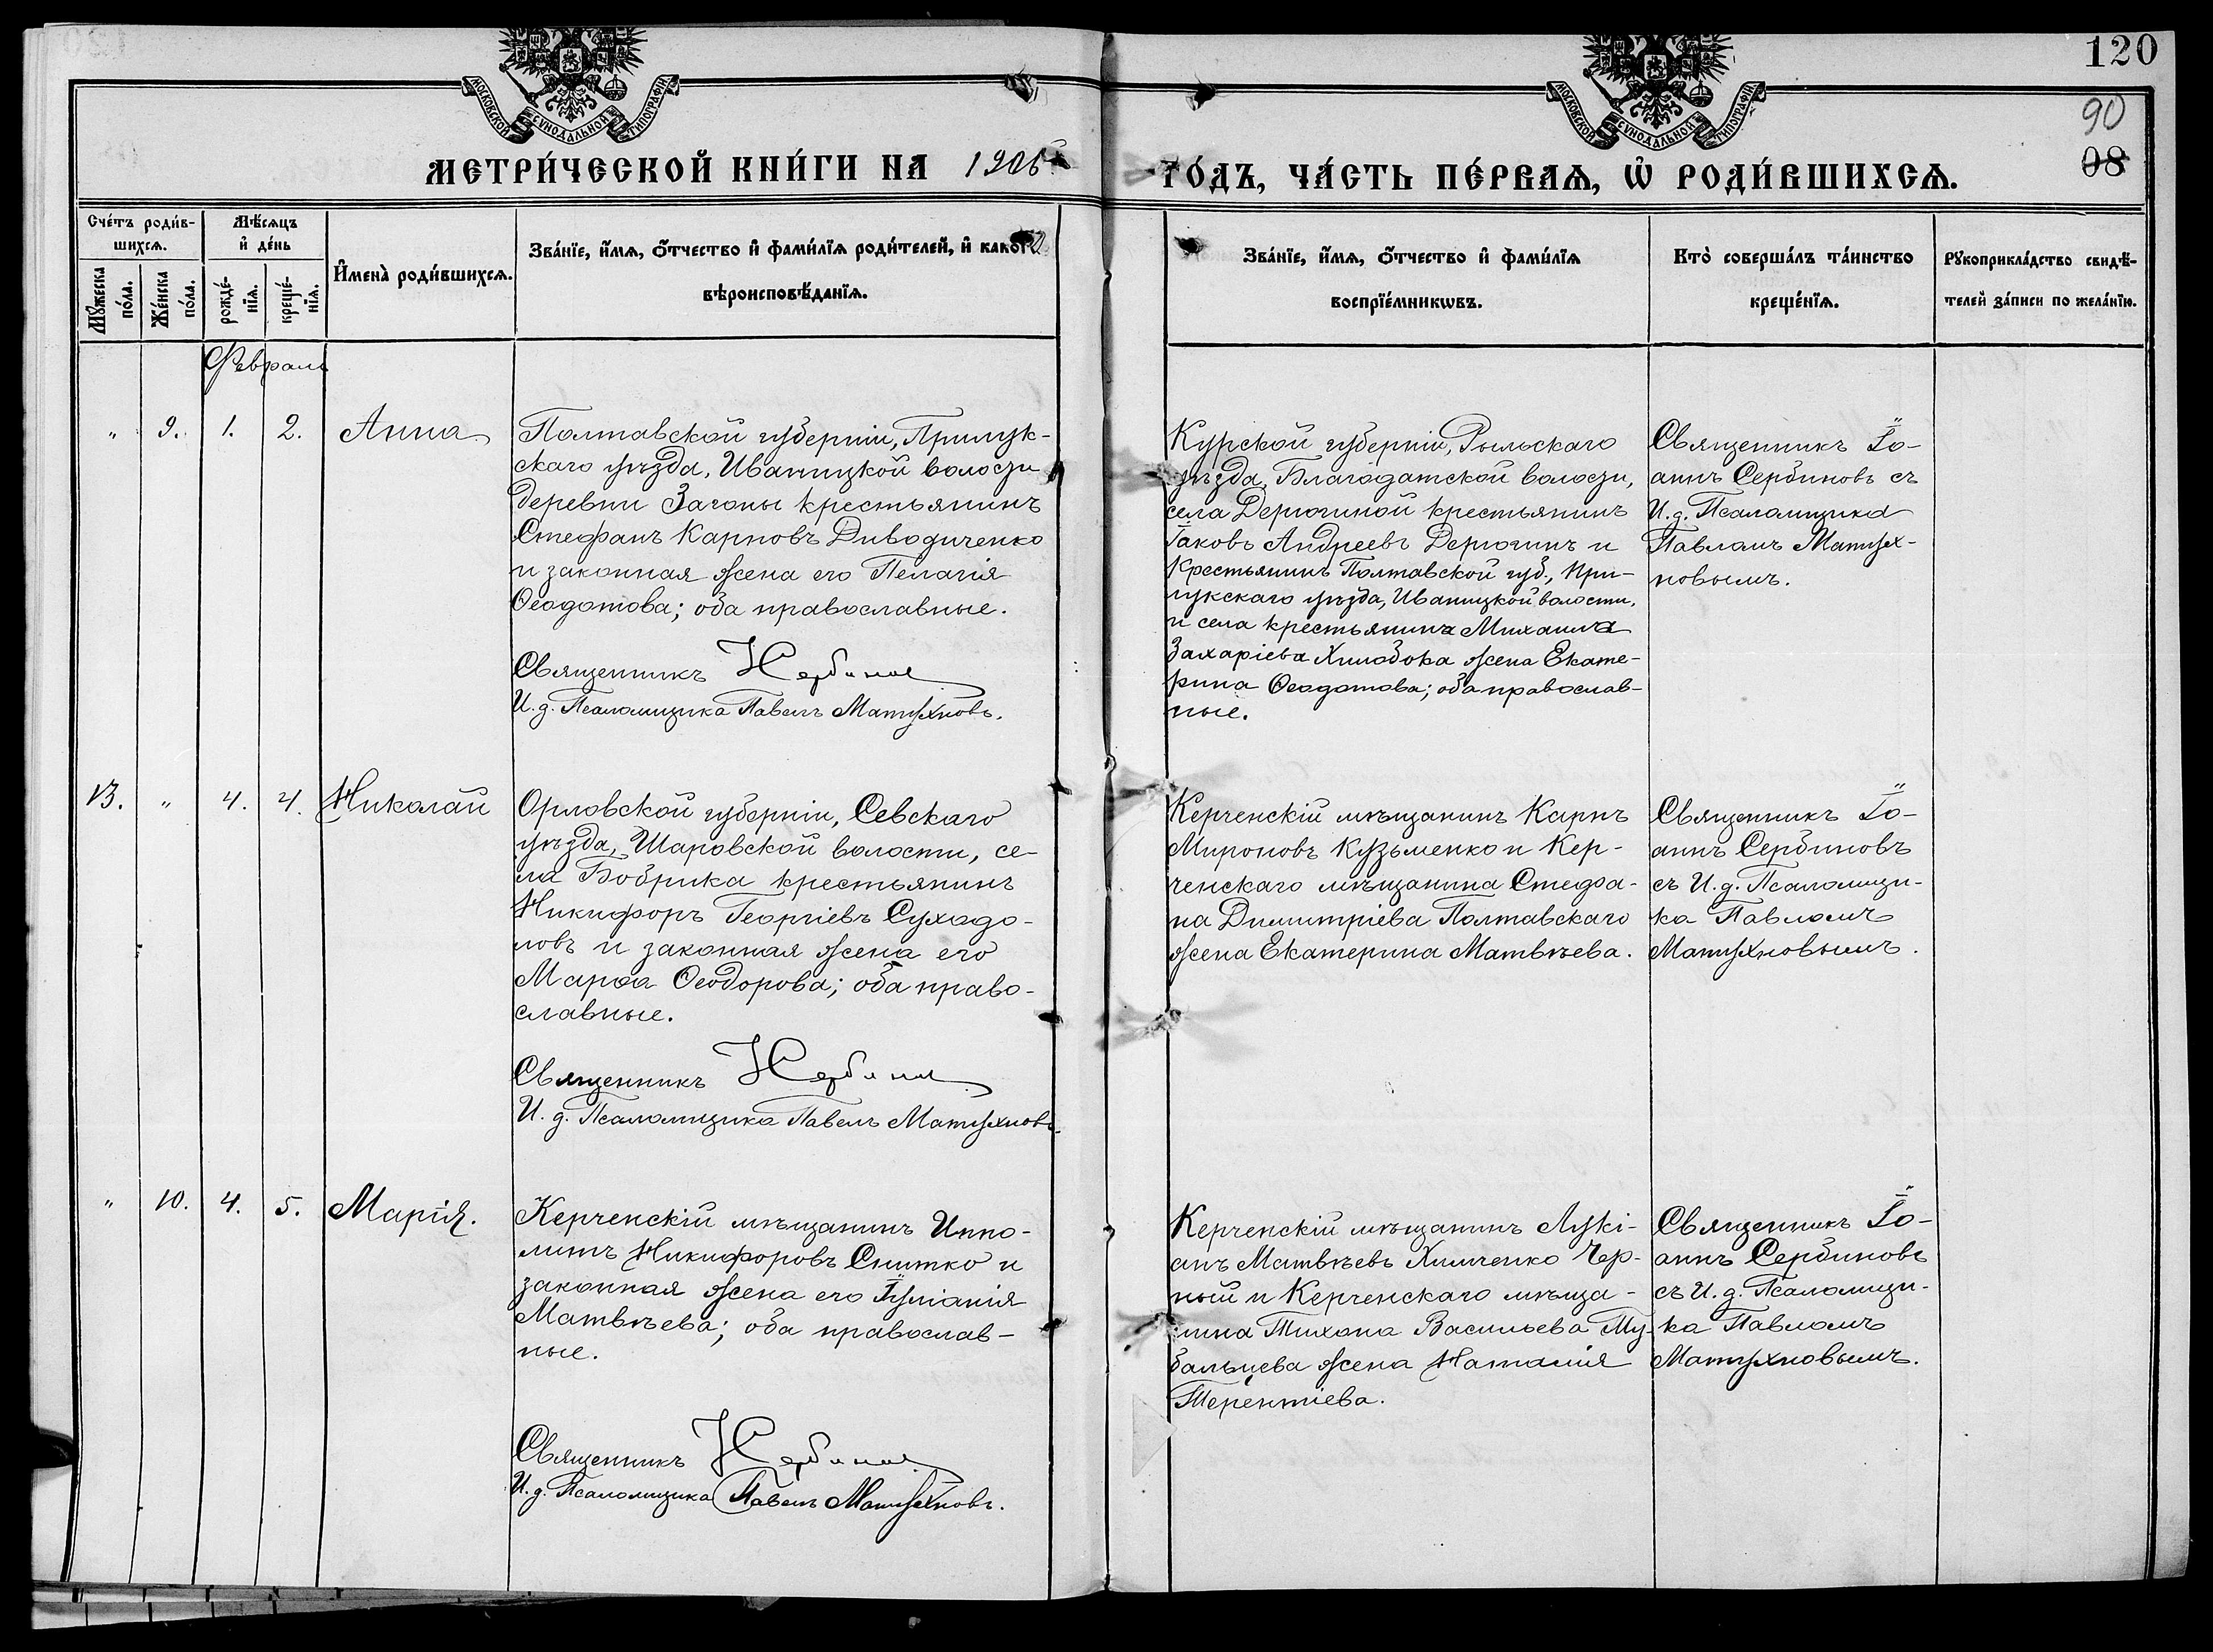 120
90
08
МОСКОВСКОЙ СѴНОДАЛЬНОЙ ТИПОГРАФІИ
МОСКОВСКОЙ СѴНОДАЛЬНОЙ ТИПОГРАФІИ
МЕТРИ́ЧЕСКОЙ КНИ́ГИ НА 1905
ГО́ДЪ, ЧА́СТЬ ПЕ́РВАѦ, Ѡ РОДИ́ВШИХСѦ.
Сче́тъ роди́в-
шихсѧ.
Мꙋжеска
по́ла.
Же́нска
по́ла.
Мѣ́сѧцъ
и҆ де́нь
рожде́-
нїѧ.
креще́-
нїѧ.
И҆мена̀ роди́вшихсѧ.
Зва́нїе, и҆́мѧ, ѻ҆́тчество и҆ фами́лїѧ роди́телей, и҆ како́гѡ
вѣроисповѣ́данїѧ.
Зва́нїе, и҆́мѧ, ѻ҆́тчество и҆ фами́лїѧ
воспрїе́мникѡвъ.
Кто̀ соверша́лъ та́инство
креще́нїѧ.
Рꙋкоприкла́дство свидѣ́-
телей за́писи по жела́нїю.
Февраль
" 9. 1. 2. Анна
Полтавской губерніи, Прилук-
скаго уѣзда, Иваницкой волости
деревни Загоны крестьянинъ
Стефанъ Карповъ Диводиченко
и законная жена его Пелагія
Ѳеодотова; оба православные.
Священникъ
И. д. Псаломщика Павелъ Матухновъ.
Курской губерніи, Рыльскаго
уѣзда, Благодатской волости,
села Дерюгиной крестьянинъ
Іаковъ Андреевъ Дерюгинъ и
крестьянинъ Полтавской губ., При-
лукскаго уѣзда, Иваницкой волости,
и села крестьянина Михаила
Захаріева Хилобока жена Екате-
рина Ѳеодотова; оба православ-
ные.
Священникъ Іо-
аннъ Сербиновъ съ
И. д. Псаломщика
Павломъ Матух-
новымъ.
13. " 4. 4. Николай
Орловской губерніи, Севскаго
уѣзда, Шаровской волости, се-
ла Бобрика крестьянинъ
Никифоръ Георгіевъ Суходо-
ловъ и законная жена его
Марѳа Ѳеодорова; оба право-
славные.
Священникъ
И. д. Псаломщика Павелъ Матухновъ.
Керченскій мѣщанинъ Карпъ
Мироновъ Кузьменко и Кер-
ченскаго мѣщанина Стефа-
на Димитріева Полтавскаго
жена Екатерина Матвѣева.
Священникъ Іо-
аннъ Сербиновъ
съ И. д. Псаломщи-
ка Павломъ
Матухновымъ.
" 10. 4. 5. Марія.
Керченскій мѣщанинъ Иппо-
литъ Никифоровъ Снитко и
законная жена его Іуліанія
Матвѣева; оба православ-
ные.
Священникъ
И. д. Псаломщика Павелъ Матухновъ.
Керченскій мѣщанинъ Лукі-
анъ Матвѣевъ Химченко Чер-
ный и Керченскаго мѣща-
нина Тихона Васильева Гу-
бальцева жена Наталія
Терентіева.
Священникъ Іо-
аннъ Сербиновъ
съ И. д. Псаломщи-
ка Павломъ
Матухновымъ.